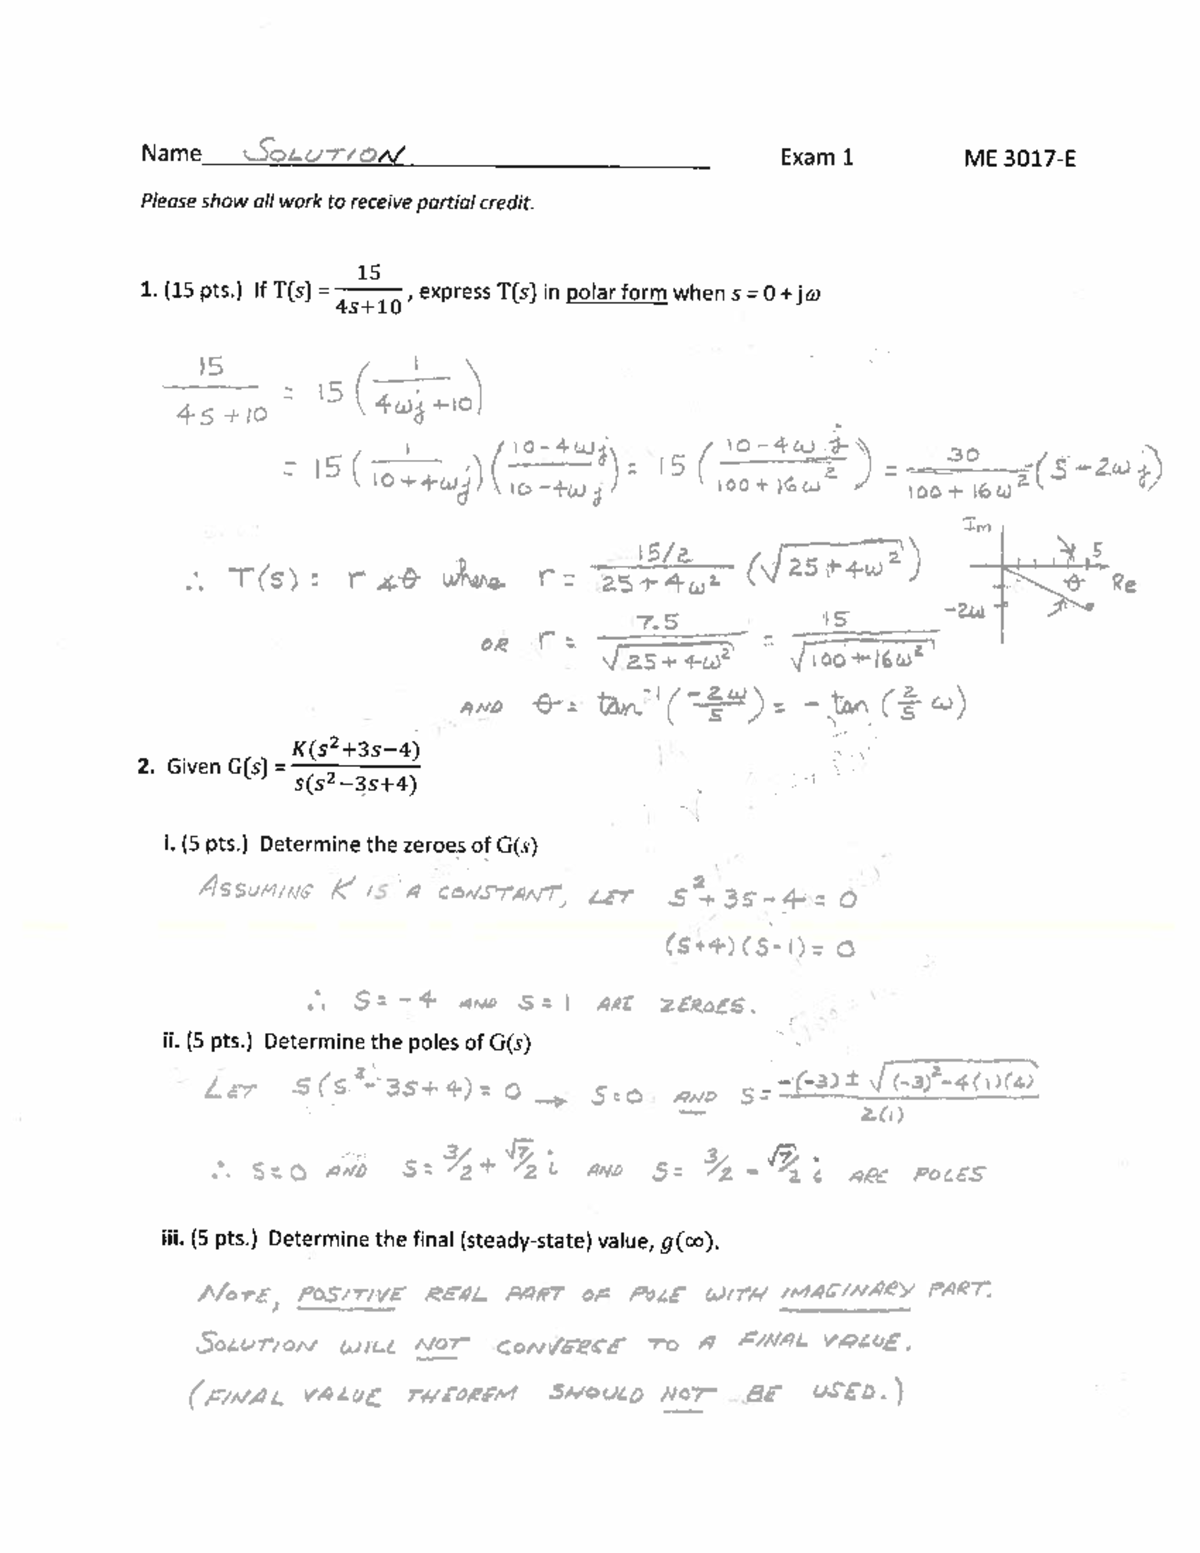 Name SOLUTION Exam 1 ME 3017-E
Please show all work to receive partial credit.
1. (15 pts.) If T(s) = 15/(4s+10), express T(s) in polar form when s = 0 + jω
15/(4s+10) = 15 (1/(4ωj+10))
= 15 (1/(10+4ωj)) ((10-4ωj)/(10-4ωj)) = 15 ((10-4ωj)/(100+16ω²)) = 30/(100+16ω²) (5-2ωj)
∴ T(s): r∡θ where r = (15/2)/(25+4ω²) (√(25+4ω²))
Im 5 θ Re -2ω
OR r = 7.5/√(25+4ω²) = 15/√(100+16ω²)
AND θ = tan⁻¹(-2ω/5) = - tan (2/5 ω)
2. Given G(s) = K(s²+3s−4)/s(s²−3s+4)
i. (5 pts.) Determine the zeroes of G(s)
ASSUMING K IS A CONSTANT, LET S²+3S-4=0
(S+4)(S-1)=0
∴ S=-4 AND S=1 ARE ZEROES.
ii. (5 pts.) Determine the poles of G(s)
LET S(S²-3S+4)=0 → S=0 AND S= (-(-3) ± √((-3)²-4(1)(4)))/2(1)
∴ S=0 AND S= 3/2 + √7/2 i AND S= 3/2 - √7/2 i ARE POLES
iii. (5 pts.) Determine the final (steady-state) value, g(∞).
NOTE, POSITIVE REAL PART OF POLE WITH IMAGINARY PART.
SOLUTION WILL NOT CONVERGE TO A FINAL VALUE.
(FINAL VALUE THEOREM SHOULD NOT BE USED.)